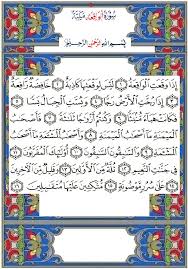 سُورَةُ الْوَاقِعَةِ مَكِّيَّة
بِسْمِ اللَّهِ الرَّحْمَٰنِ الرَّحِيمِ
إِذَا وَقَعَتِ الْوَاقِعَةُ ١ لَيْسَ لِوَقْعَتِهَا كَاذِبَةٌ ٢ خَافِضَةٌ رَّافِعَةٌ
٣ إِذَا رُجَّتِ الْأَرْضُ رَجًّا ٤ وَبُسَّتِ الْجِبَالُ بَسًّا ٥
فَكَانَتْ هَبَاءً مُّنبَثًّا ٦ وَكُنتُمْ أَزْوَاجًا ثَلَاثَةً ٧ فَأَصْحَابُ
الْمَيْمَنَةِ مَا أَصْحَابُ الْمَيْمَنَةِ ٨ وَأَصْحَابُ الْمَشْأَمَةِ مَا أَصْحَابُ
الْمَشْأَمَةِ ٩ وَالسَّابِقُونَ السَّابِقُونَ ١٠ أُولَٰئِكَ الْمُقَرَّبُونَ ١١
فِي جَنَّاتِ النَّعِيمِ ١٢ ثُلَّةٌ مِّنَ الْأَوَّلِينَ ١٣ وَقَلِيلٌ مِّنَ الْآخِرِينَ
١٤ عَلَىٰ سُرُرٍ مَّوْضُونَةٍ ١٥ مُّتَّكِئِينَ عَلَيْهَا مُتَقَابِلِينَ ١٦